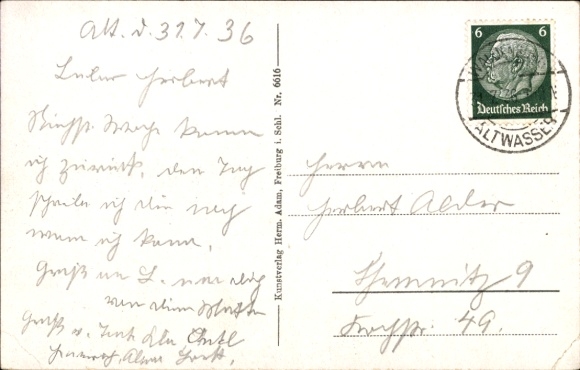 Alt. d. 31.7.36
Lieber Herbert
Nächste Woche komme
ich zurück, den Tag
schreibe ich dir noch
wann ich komme.
Gruß
von deiner Mutter
Gruß v. Onkel
Kunstverlag Herm. Adam, Freiburg i. Schl. Nr. 6616
6 6
Deutsches Reich
ALTWASSER
Herrn
Herbert Alder
Chemnitz 9
49.